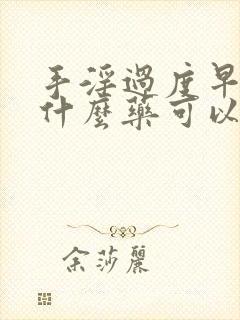 手淫過度早
什麼藥可以
余莎麗